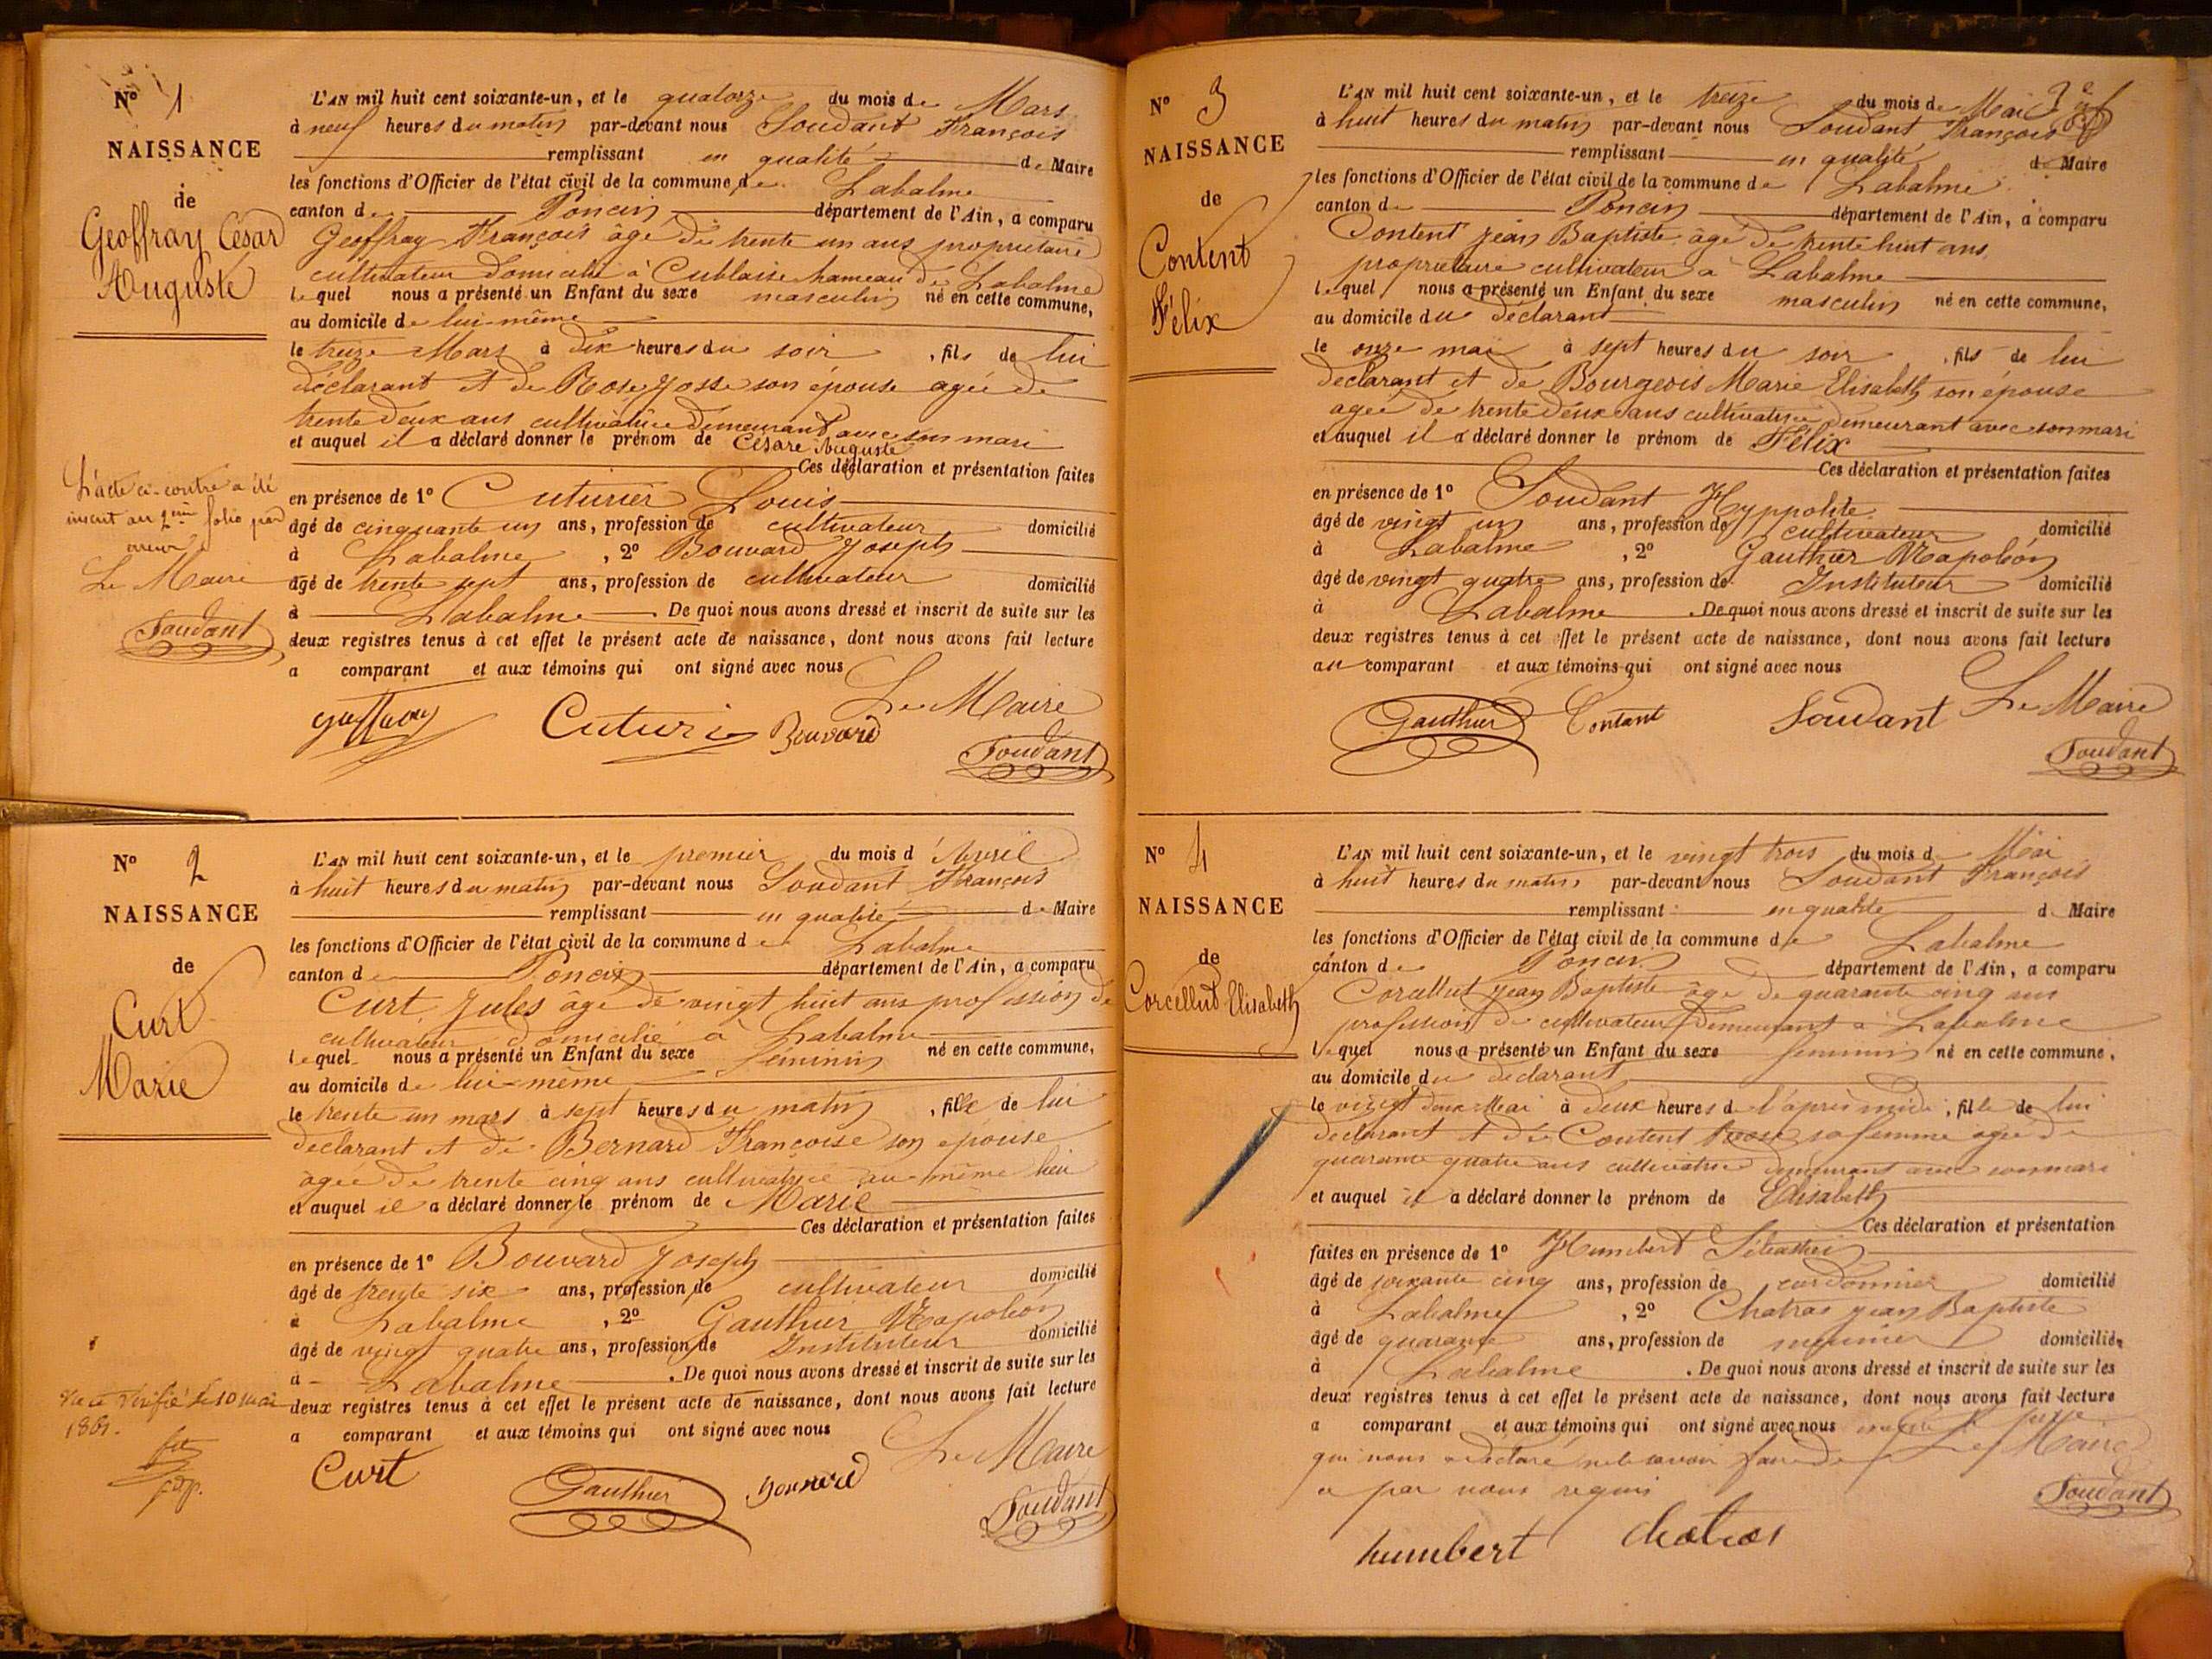 N° 1
NAISSANCE
de
Geoffray César
Auguste
L'AN mil huit cent soixante-un, et le quatorze du mois de Mars
à neuf heures du matin par-devant nous Soudant François
remplissant en qualité de Maire
les fonctions d'Officier de l'état civil de la commune de Labalme
canton de Poncin département de l'Ain, a comparu
Geoffray François âgé de trente un ans propriétaire
cultivateur domicilié à Cublaise hameau de Labalme
lequel nous a présenté un Enfant du sexe masculin né en cette commune,
au domicile de lui-même
le treize Mars à dix heures du soir, fils de lui
déclarant et de Rose Josse son épouse agée de
trente deux ans cultivatrice demeurant avec son mari
et auquel il a déclaré donner le prénom de César Auguste
Ces déclaration et présentation faites
en présence de 1° Cuturier Louis
âgé de cinquante un ans, profession de cultivateur domicilié
à Labalme, 2° Bouvard Joseph
âgé de trente sept ans, profession de cultivateur domicilié
à Labalme. De quoi nous avons dressé et inscrit de suite sur les
deux registres tenus à cet effet le présent acte de naissance, dont nous avons fait lecture
a comparant et aux témoins qui ont signé avec nous
Le Maire
Geoffray Cuturie Bouvard Soudant
L'acte ci-contre a été
inscrit au 2ème folio par
erreur
Le Maire
Soudant
N° 2
NAISSANCE
de
Curt
Marie
L'AN mil huit cent soixante-un, et le premier du mois d'Avril
à huit heures du matin par-devant nous Soudant François
remplissant en qualité de Maire
les fonctions d'Officier de l'état civil de la commune de Labalme
canton de Poncin département de l'Ain, a comparu
Curt Jules âgé de vingt huit ans profession de
cultivateur domicilié à Labalme
lequel nous a présenté un Enfant du sexe féminin né en cette commune,
au domicile de lui-même
le trente un mars à sept heures du matin, fille de lui
déclarant et de Bernard Françoise son épouse
agée de trente cinq ans cultivatrice au même lieu
et auquel il a déclaré donner le prénom de Marie
Ces déclaration et présentation faites
en présence de 1° Bouvard Joseph
âgé de trente six ans, profession de cultivateur domicilié
à Labalme, 2° Gauthier Napoléon
âgé de vingt quatre ans, profession de Instituteur domicilié
à Labalme. De quoi nous avons dressé et inscrit de suite sur les
deux registres tenus à cet effet le présent acte de naissance, dont nous avons fait lecture
a comparant et aux témoins qui ont signé avec nous
Le Maire
Curt Gauthier Bouvard Soudant
Vu et vérifié le 10 mai
1861.
N° 3
NAISSANCE
de
Content
Félix
L'AN mil huit cent soixante-un, et le treize du mois de Mai
à huit heures du matin par-devant nous Soudant François
remplissant en qualité de Maire
les fonctions d'Officier de l'état civil de la commune de Labalme
canton de Poncin département de l'Ain, a comparu
Content Jean Baptiste âgé de trente huit ans
propriétaire cultivateur à Labalme
lequel nous a présenté un Enfant du sexe masculin né en cette commune,
au domicile du déclarant
le onze mai à sept heures du soir, fils de lui
déclarant et de Bourgeois Marie Elisabeth son épouse
agée de trente deux ans cultivatrice demeurant avec son mari
et auquel il a déclaré donner le prénom de Félix
Ces déclaration et présentation faites
en présence de 1° Soudant Hyppolite
âgé de vingt un ans, profession de cultivateur domicilié
à Labalme, 2° Gauthier Napoléon
âgé de vingt quatre ans, profession de Instituteur domicilié
à Labalme. De quoi nous avons dressé et inscrit de suite sur les
deux registres tenus à cet effet le présent acte de naissance, dont nous avons fait lecture
au comparant et aux témoins qui ont signé avec nous
Le Maire
Gauthier Contant Soudant Soudant
N° 4
NAISSANCE
de
Corcellut Elisabeth
L'AN mil huit cent soixante-un, et le vingt trois du mois de Mai
à huit heures du matin par-devant nous Soudant François
remplissant en qualité de Maire
les fonctions d'Officier de l'état civil de la commune de Labalme
canton de Poncin département de l'Ain, a comparu
Corcellut Jean Baptiste âgé de quarante cinq ans
profession de cultivateur demeurant à Labalme
lequel nous a présenté un Enfant du sexe féminin né en cette commune,
au domicile du déclarant
le vingt deux Mai à deux heures de l'après midi, fille de lui
déclarant et de Content Rose sa femme agée de
quarante quatre ans cultivatrice demeurant avec son mari
et auquel il a déclaré donner le prénom de Elisabeth
Ces déclaration et présentation
faites en présence de 1° Humbert
âgé de soixante cinq ans, profession de cordonnier domicilié
à Labalme, 2° Chatras Jean Baptiste
âgé de quarante ans, profession de meunier domicilié
à Labalme. De quoi nous avons dressé et inscrit de suite sur les
deux registres tenus à cet effet le présent acte de naissance, dont nous avons fait lecture
a comparant et aux témoins qui ont signé avec nous
qui nous a déclaré ne le savoir faire de Le Maire
ce par nous requis
Soudant
humbert chatras